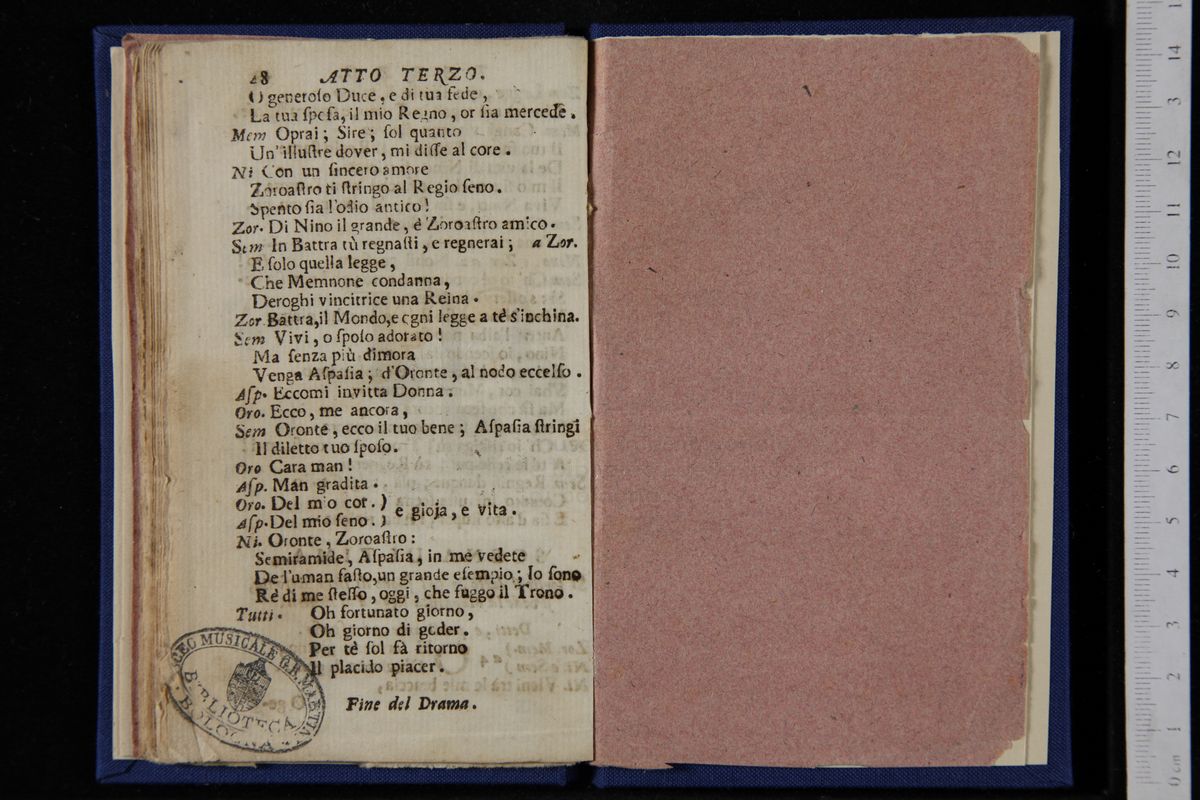 28 ATTO TERZO.
O generoſo Duce, e di tua fede,
La tua ſpeſa, il mio Regno, or ſia mercede.
Mem Oprai; Sire; ſol quanto
Un'illuſtre dover, mi diſſe al core.
Ni Con un ſincero amore
Zoroaſtro ti ſtringo al Regio ſeno.
Spento ſia l'odio antico!
Zor. Di Nino il grande, é Zoroaſtro amico.
Sem In Battra tù regnaſti, e regnerai; a Zor.
E ſolo quella legge,
Che Memnone condanna,
Deroghi vincitrice una Reina.
Zor Battra, il Mondo, e ogni legge a tè s'inchina.
Sem Vivi, o ſpoſo adorato!
Ma ſenza più dimora
Venga Aſpaſia; d'Oronte, al nodo eccelſo.
Aſp. Eccomi invitta Donna.
Oro. Ecco, me ancora,
Sem Oronte, ecco il tuo bene; Aſpaſia ſtringi
Il diletto tuo ſpoſo.
Oro Cara man!
Aſp. Man gradita.
Oro. Del mio cor. ) e gioja, e vita.
Aſp. Del mio ſeno. )
Ni. Oronte, Zoroaſtro:
Semiramide, Aſpaſia, in me vedete
De l'uman faſto, un grande eſempio; Io ſono
Rè di me ſteſſo, oggi, che fuggo il Trono.
Tutti. Oh fortunato giorno,
Oh giorno di goder.
Per tè ſol fà ritorno
Il placido piacer.
Fine del Drama.
LICEO MUSICALE G.B. MARTINI
BIBLIOTECA
BOLOGNA
0 cm 1 2 3 4 5 6 7 8 9 10 11 12 3 14